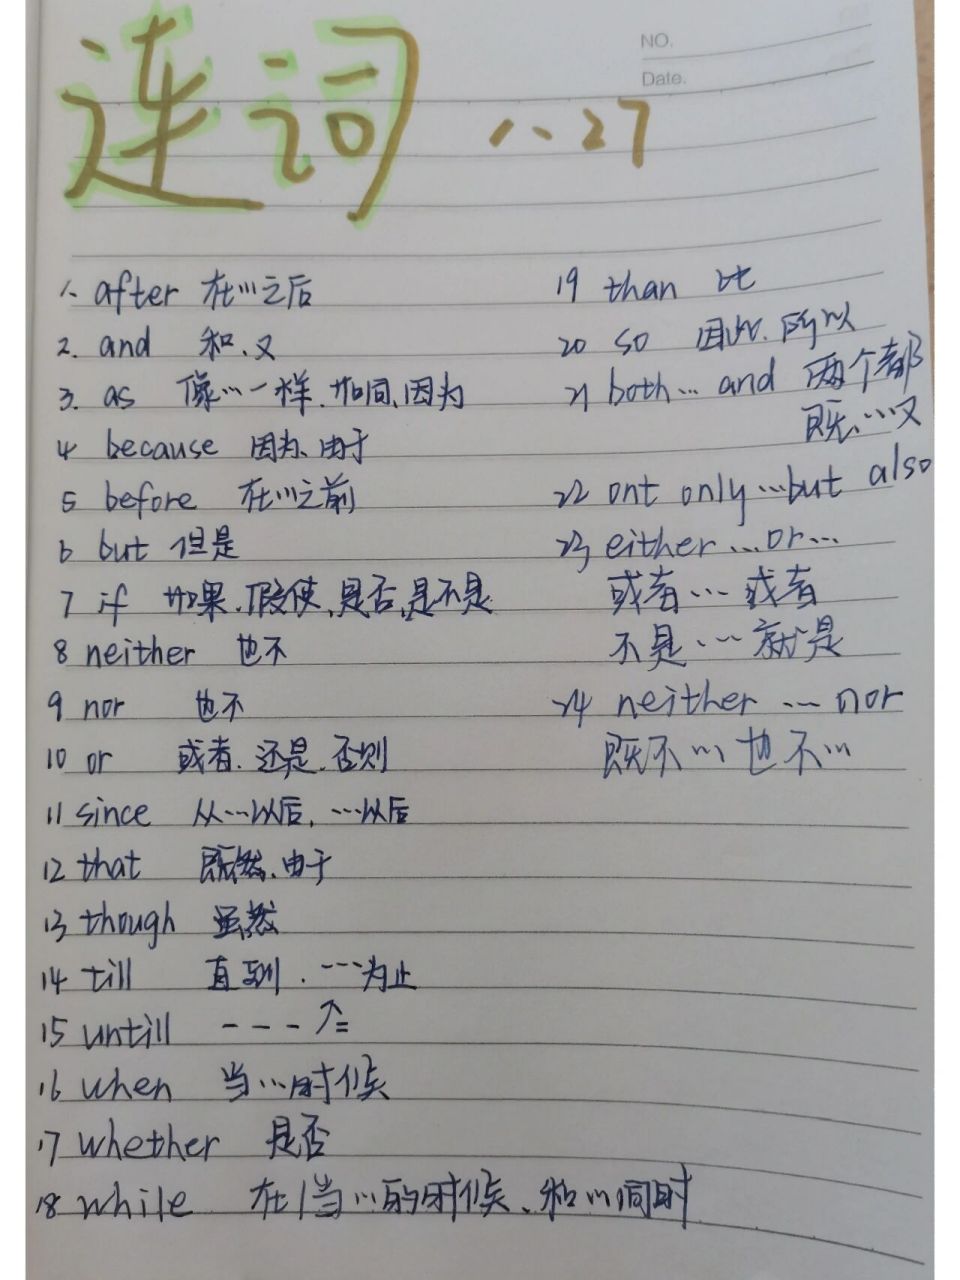 NO.
Date.
连词 1.27
1. after 在…之后
2. and 和.又
3. as 像…一样.如同、因为
4 because 因为、由于
5 before 在…之前
6 but 但是
7 if 如果.假使.是否.是不是
8 neither 也不
9 nor 也不
10 or 或者.还是.否则
11 since 从…以后, …以后
12 that 既然.由于
13 though 虽然
14 till 直到. …为止
15 untill ---↑=
16 when 当…时候
17 whether 是否
18 while 在/当…的时候、和…同时
19 than 比
20 so 因此.所以
21 both… and 两个都
既…又
22 ont only…but also
23 either…or…
或者…或者
不是…就是
24 neither…nor
既不…也不…